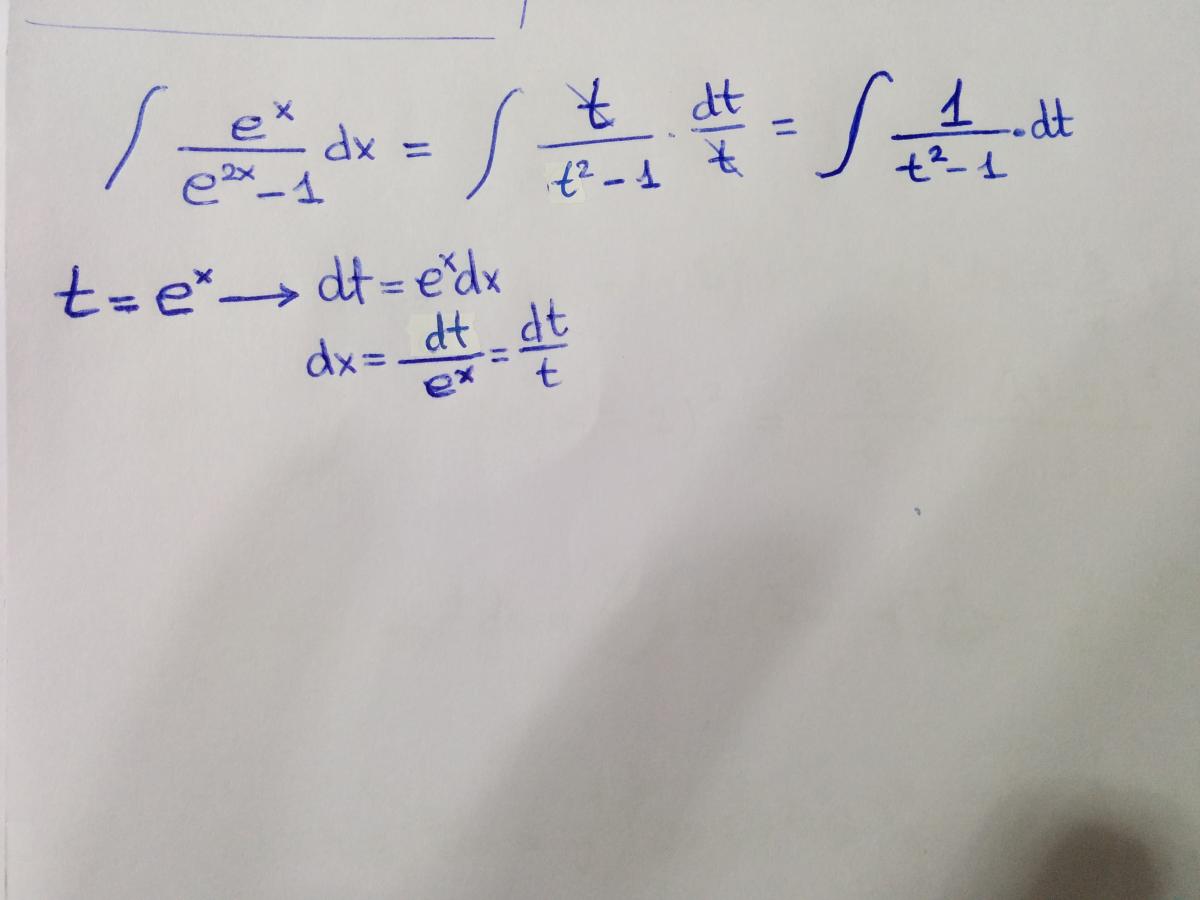 ∫ e^x / (e^{2x} - 1) dx = ∫ t / (t^2 - 1) · dt / t = ∫ 1 / (t^2 - 1) · dt
t = e^x → dt = e^x dx
dx = dt / e^x = dt / t